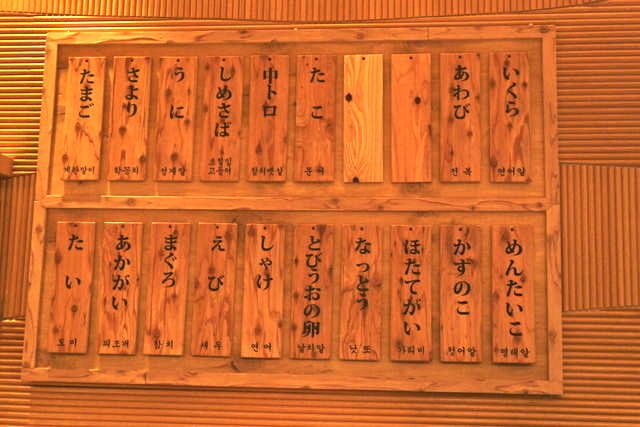 いくら
연어알
あわび
전복
たこ
문어
中トロ
참치뱃살
しめさば
초절임
고등어
うに
성게알
さより
학꽁치
たまご
계란말이
めんたいこ
명태알
かずのこ
청어알
ほたてがい
가리비
なっとう
낫또
とびうおの卵
날치알
しゃけ
연어
えび
새우
まぐろ
참치
あかがい
피조개
たい
도미